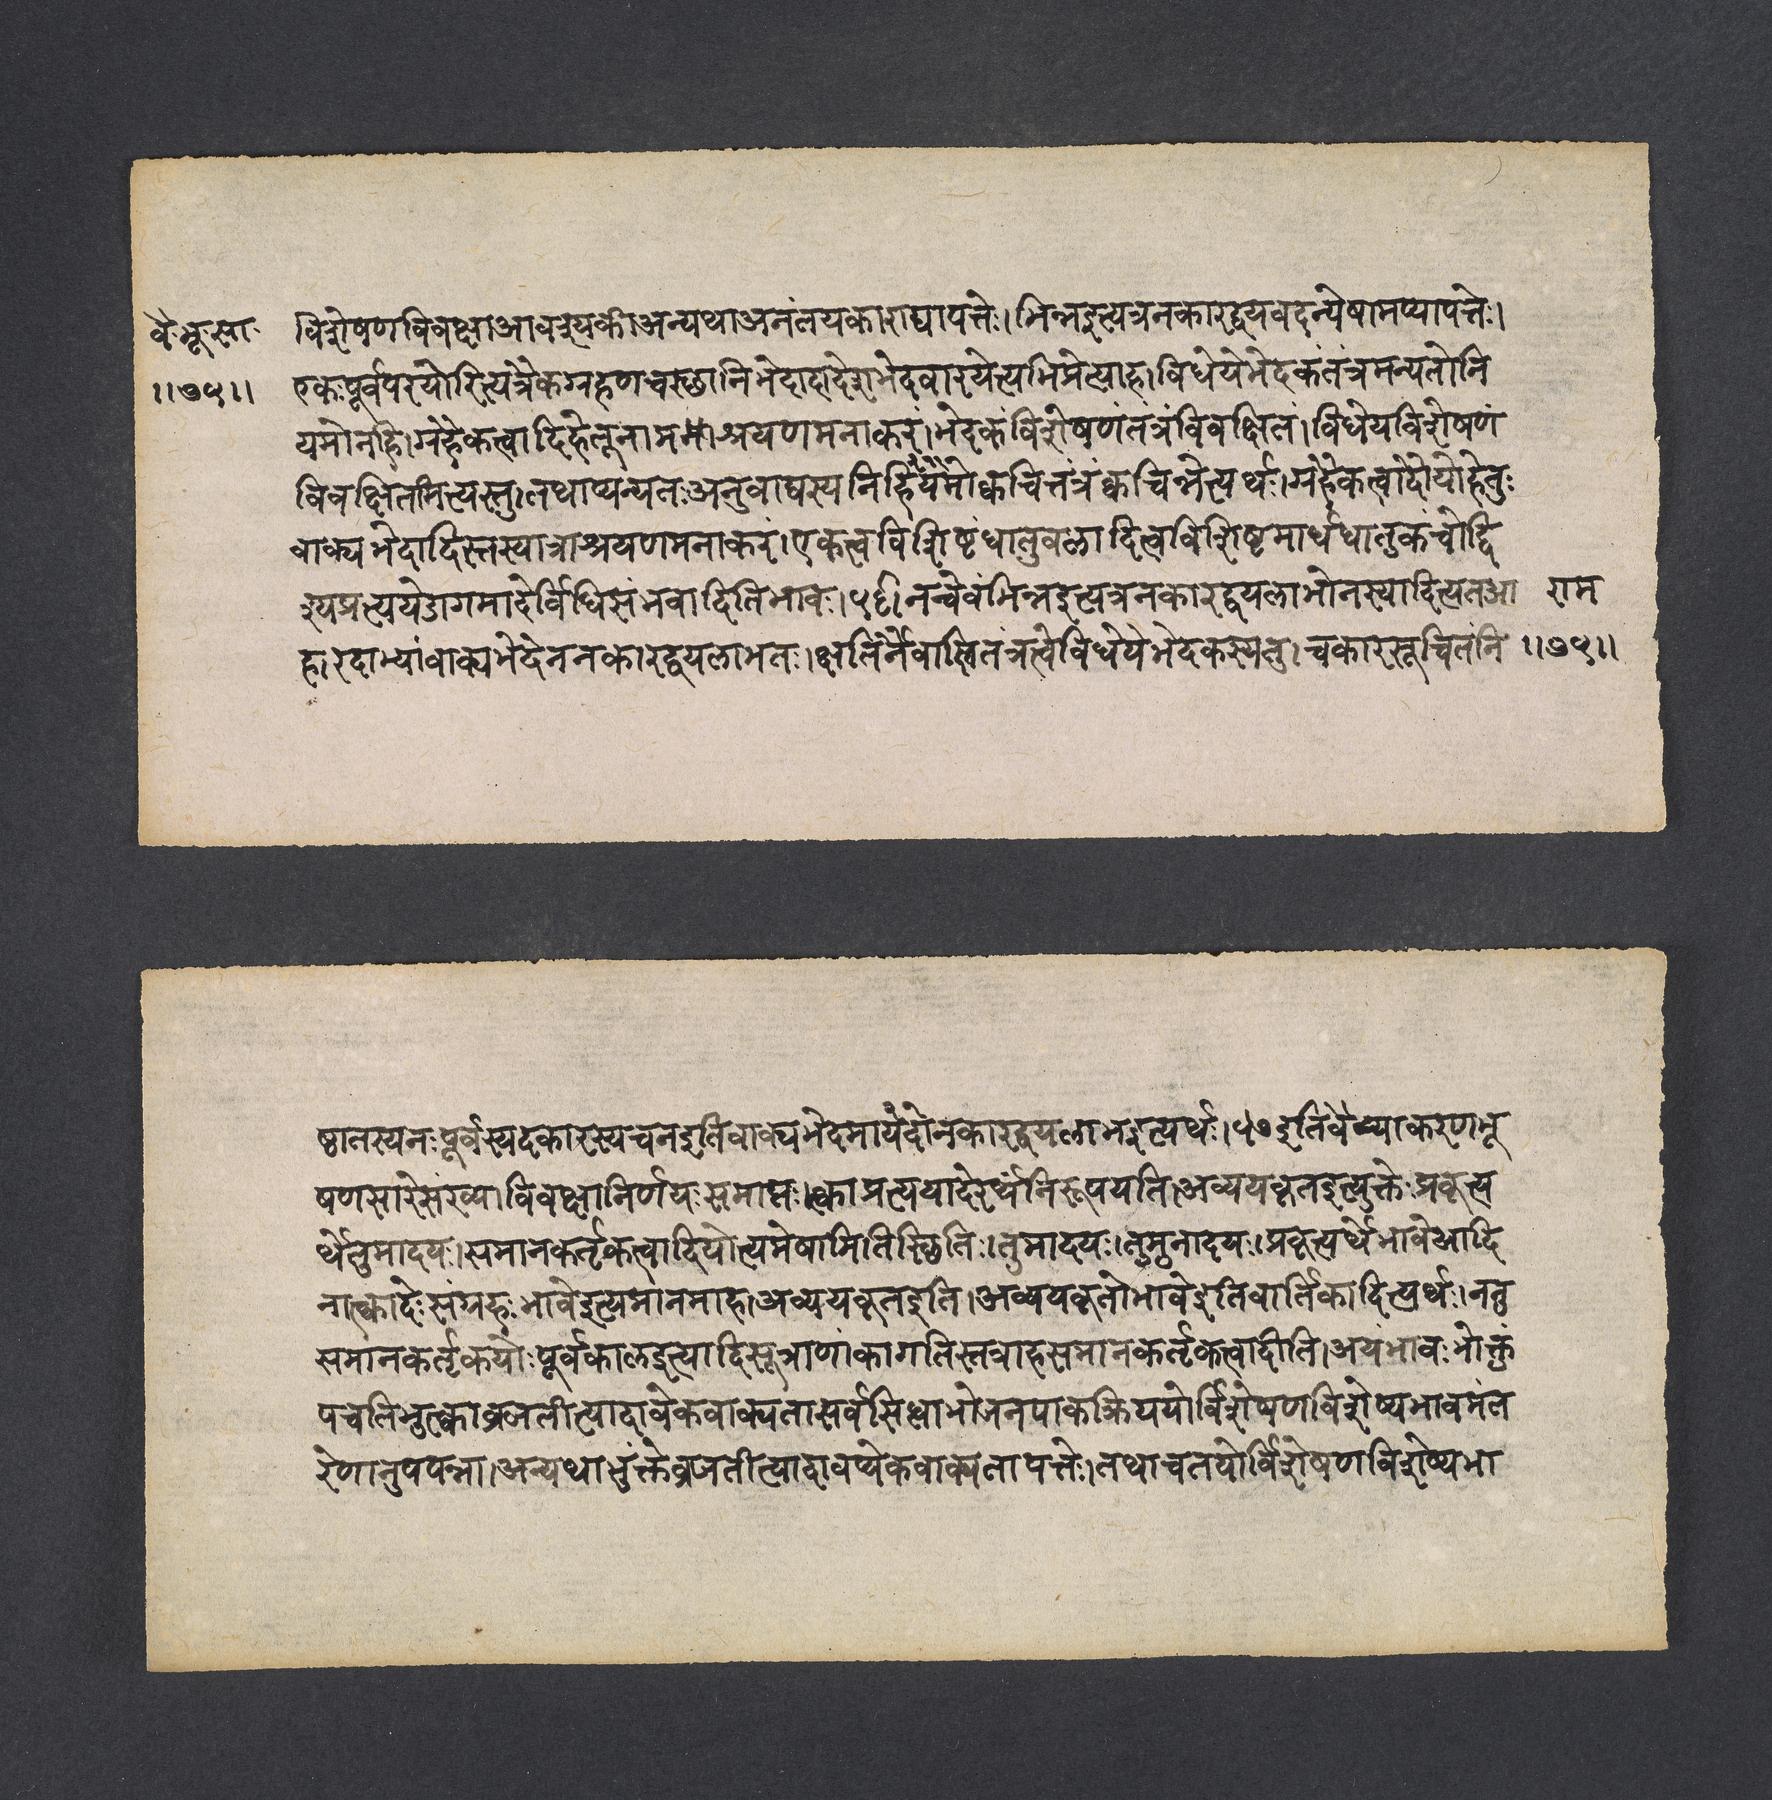 वै॰भू॰सा॰ विशेषणविवक्षाआवश्यकी।अन्यथाअनंतयकाराद्यापत्तेः।भिन्नइत्यत्रनकारद्वयवदन्येषामप्यापत्तेः।
॥७५॥ एकःपूर्वपरयोरित्यत्रैकग्रहणंचस्थानिभेदादादेशभेदवारयेत्यभिप्रेत्याह।विधेयेभेदकंतंत्रमन्यतोनि
यमोनहि।ग्रहैकत्वादिहेतूनामाश्रयणमनाकरं।भेदकंविशेषणंतत्रंविवक्षितं।विधेयविशेषणं
विवक्षितमित्यस्तु।तथाप्यन्यतःअनुवाद्यस्यनहिनियमोक्वचित्तंत्रंक्वचिन्नेत्यर्थः।ग्रहैकत्वादौयोहेतुः
वाक्यभेदादिस्तस्यात्राश्रयणमनाकरं।एकत्वविशिष्टंधातुवलादित्वविशिष्टमार्धधातुकंचोद्दि
श्यप्रत्ययेडागमादेर्विधिसंभवादितिभावः।५६।नन्वेवंभिन्नइत्यत्रनकारद्वयलाभोनस्यादित्यतआ राम
ह।रदाभ्यांवाक्यभेदेननकारद्वयलाभतः।क्षतिर्नैवास्तितंत्रत्वेविधेयेभेदकस्यतु।चकारसूचितंनि ॥७५॥
ष्ठातस्यनःपूर्वस्यदकारस्यचनइतिवाक्यभेदमादायनकारद्वयलाभइत्यर्थः।५७इतिवैय्याकरणभू
षणसारेसंख्याविवक्षानिर्णयःसमाप्तः।त्काप्रत्ययादेरर्थंनिरूपयति।अव्ययकृतइत्युक्तेःप्रकृत्य
र्थेतुमादयः।समानकर्तृकत्वादिद्योत्यमेषामितिस्थितिः।तुमादयः।तुमुनादयः।प्रकृत्यर्थेभावेआदि
नात्कादेःसंग्रहःभावेइत्यत्रमानमाह।अव्ययकृतइति।अव्ययकृतोभावेइतिवार्तिकादित्यर्थः।ननु
समानकर्तृकयोःपूर्वकालइत्यादिसूत्राणांकागतिस्तत्राहसमानकर्तृकत्वादीति।अयंभावःभोक्तुं
पचतिभुत्काव्रजतीत्यादावेकवाक्यतासर्वसिद्धाभोजनपाकक्रिययोर्विशेषणविशेष्यभावमंत
रेणानुपपन्ना।अन्यथाभुंक्तेव्रजतीत्यादावप्येकवाक्यतापत्तेः।तथाचतयोर्विशेषणविशेष्यभा